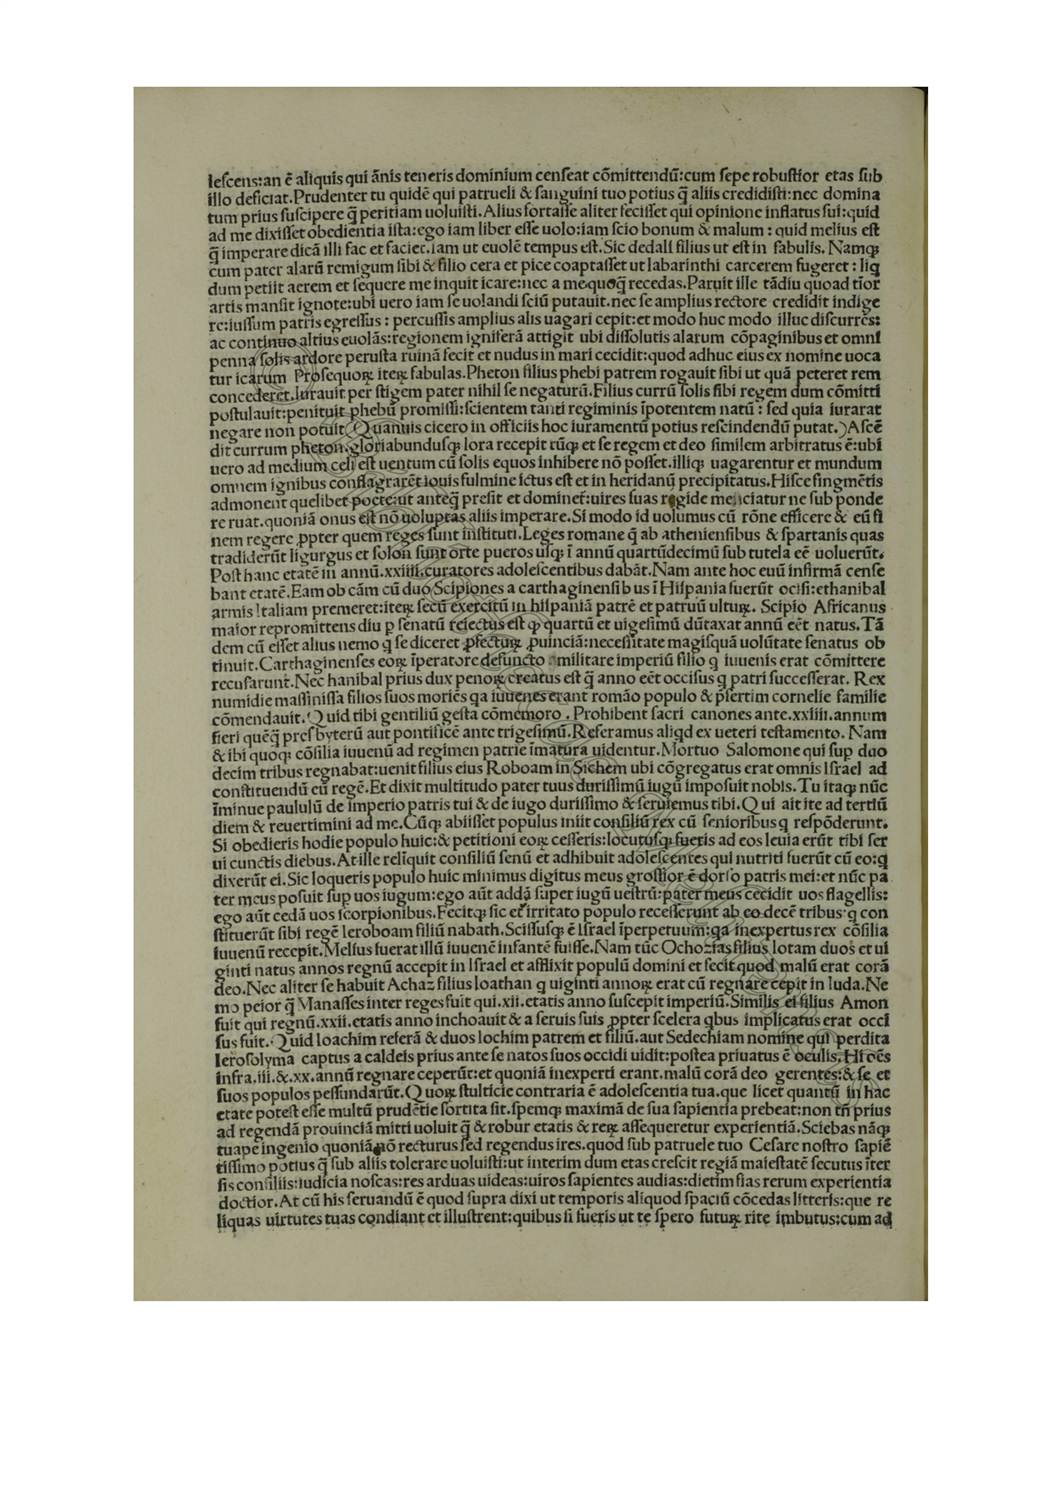 lescens:an ē aliquis qui ānis teneris dominium censeat cōmittendū:cum sepe robustior etas sub
illo deficiat.Prudenter tu quidē qui patrueli & sanguini tuo potius q̄ aliis credidisti:nec domina
tum prius suscipere q̄ peritiam uoluisti.Alius fortasse aliter fecisset qui opinione inflatus sui:quid
ad me dixisset obedientia ista:ego iam liber esse uolo:iam scio bonum & malum : quid melius est
q̄ imperare dicā illi fac et faciet.iam ut euolē tempus est.Sic dedali filius ut est in fabulis. Namqꝫ
cum pater alarū remigum sibi & filio cera et pice coaptasset ut labarinthi carcerem fugeret : liq̄
dum petiit aerem et sequere me inquit icare:nec a me quoq̄ recedas.Paruit ille tādiu quoad tīor
artis mansit ignote:ubi uero iam se uolandi sciū putauit.nec se amplius rectore credidit indige
re:iussum patris egressus : percussis amplius alis uagari cepit:et modo huc modo illuc discurrēs:
ac continuo altius euolās:regionem igniferā attigit ubi dissolutis alarum cōpaginibus et omni
penna solis ardore perusta ruinā fecit et nudus in mari cecidit:quod adhuc eius ex nomine uoca
tur icarum Prosequoꝝ iteꝝ fabulas.Pheton filius phebi patrem rogauit sibi ut quā peteret rem
concederet.Iurauit per stigem pater nihil se negaturū.Filius currū solis sibi regem dum cōmitti
postulauit:penituit phebū promissi:scientem tanti regiminis īpotentem natū : sed quia iurarat
negare non potuit(Quanuis cicero in officiis hoc iuramentū potius rescindendū putat.)Ascē
dit currum pheton.gloriabundusqꝫ lora recepit tūqꝫ et se regem et deo similem arbitratus ē:ubi
uero ad medium celi est uentum cū solis equos inhibere nō posset.illiqꝫ uagarentur et mundum
omnem ignibus conflagrarēt iouis fulmine ictus est et in heridanū precipitatus.Hisce figmētis
admonent quelibet poete:ut anteq̄ presit et dominet̄:uires suas rigide menciatur ne sub ponde
re ruat.quoniā onus est nō uoluptas aliis imperare.Si modo id uolumus cū rōne efficere & eū fi
nem regere ꝓpter quem reges sunt instituti.Leges romane q̄ ab atheniensibus & spartanis quas
tradiderūt ligurgus et solon sunt orte pueros usqꝫ ī annū quartūdecimū sub tutela eē uoluerūt.
Post hanc etatē in annū.xxiiii.curatores adolescentibus dabāt.Nam ante hoc euū infirmā cense
bant etatē.Eam ob cām cū duo Scipiones a carthaginensibus ī Hispania fuerūt ocisi:ethanibal
armis Italiam premeret:iteꝝ secū exercitū in hispaniā patrē et patruū ultuꝝ. Scipio Africanus
maior repromittens diu p senatū reiectus est ꝙ quartū et uigesimū dūtaxat annū eēt natus.Tā
dem cū esset alius nemo q̄ se diceret ꝓfectuꝝ ꝓuinciā:necessitate magisquā uolūtate senatus ob
tinuit.Carthaginenses eoꝝ īperatore defuncto militare imperiū filio q̄ iuuenis erat cōmittere
recusarunt.Nec hanibal prius dux penoꝝ creatus est q̄ anno eēt occisus q patri successerat. Rex
numidie massinissa filios suos moriēs qa iuuenes erant romāo populo & p̄sertim cornelie familie
cōmendauit.Quid tibi gentiliū gesta cōmemoro . Prohibent sacri canones ante.xxiiii.annum
fieri quēq̄ presbyterū aut pontificē ante trigesimū.Referamus aliqd ex ueteri testamento. Nam
& ibi quoqꝫ cōsilia iuuenū ad regimen patrie īmatura uidentur.Mortuo Salomone qui sup duo
decim tribus regnabat:uenit filius eius Roboam in Sichem ubi cōgregatus erat omnis Israel ad
constituendū eū regē.Et dixit multitudo pater tuus durissimū iugū imposuit nobis.Tu itaqꝫ nūc
īminue paululū de imperio patris tui & de iugo durissimo & seruiemus tibi.Qui ait ite ad tertiū
diem & reuertimini ad me.Cūqꝫ abiisset populus iniit consiliū rex cū senioribus q respōderunt.
Si obedieris hodie populo huic:& petitioni eoꝝ cesseris:locutusqꝫ fueris ad eos leuia erūt tibi ser
ui cunctis diebus.At ille reliquit consiliū senū et adhibuit adolescentes qui nutriti fuerūt cū eo:q
dixerūt ei.Sic loqueris populo huic minimus digitus meus grossior ē dorso patris mei:et nūc pa
ter meus posuit sup uos iugum:ego aūt addā super iugū uestrū:pater meus cecidit uos flagellis:
ego aūt cedā uos scorpionibus.Fecitqꝫ sic et irritato populo recesserunt ab eo decē tribus q con
stituerūt sibi regē Ieroboam filiū nabath.Scissusqꝫ ē Israel īperpetuum:qa inexpertus rex cōsilia
iuuenū recepit.Melius fuerat illū iuuenē infantē fuisse.Nam tūc Ochozias filius Iotam duos et ui
ginti natus annos regnū accepit in Israel et afflixit populū domini et fecit quod malū erat corā
deo.Nec aliter se habuit Achaz filius Ioathan q uiginti annoꝝ erat cū regnare cepit in Iuda.Ne
mo peior q̄ Manasses inter reges fuit qui.xii.etatis anno suscepit imperiū.Similis ei filius Amon
fuit qui regnū.xxii.etatis anno inchoauit & a seruis suis ꝓpter scelera qbus implicatus erat occi
sus fuit. Quid Ioachim referā & duos Iochim patrem et filiū.aut Sedechiam nomine qui perdita
Ierosolyma captus a caldeis prius ante se natos suos occidi uidit:postea priuatus ē oculis.Hi oēs
infra.iii.&.xx.annū regnare ceperūt:et quoniā inexperti erant.malū corā deo gerentes:& se et
suos populos pessundarūt.Quoꝝ stulticie contraria ē adolescentia tua.que licet quantū in hac
etate potest esse multū prudētie sortita sit.spemqꝫ maximā de sua sapientia prebeat:non tn̄ prius
ad regendā prouinciā mitti uoluit q̄ & robur etatis & reꝝ assequeretur experientiā.Sciebas nāqꝫ
tuape ingenio quoniā nō recturus sed regendus ires.quod sub patruele tuo Cesare nostro sapiē
tissimo potius q̄ sub aliis tolerare uoluisti:ut interim dum etas crescit regiā maiestatē secutus īter
sis consiliis:iudicia noscas:res arduas uideas:uiros sapientes audias:dietim fias rerum experientia
doctior.At cū his seruandū ē quod supra dixi ut temporis aliquod spaciū cōcedas litteris:que re
liquas uirtutes tuas condiant et illustrent:quibus si fueris ut te spero futuꝝ rite imbutus:cum ad